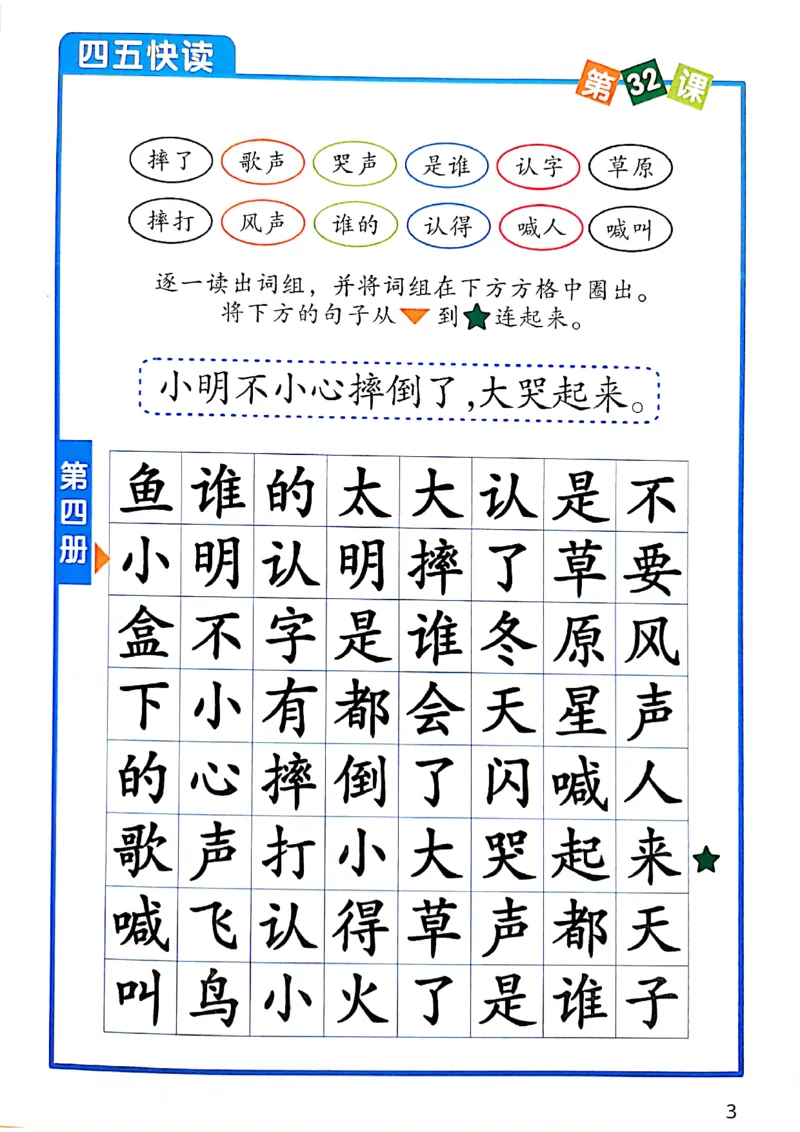 四五快读
第32课
摔了 歌声 哭声 是谁 认字 草原
摔打 风声 谁的 认得 喊人 喊叫
逐一读出词组，并将词组在下方方格中圈出。
将下方的句子从 到 连起来。
小明不小心摔倒了,大哭起来。
第四册
鱼 谁 的 太 大 认 是 不
小 明 认 明 摔 了 草 要
盒 不 字 是 谁 冬 原 风
下 小 有 都 会 天 星 声
的 心 摔 倒 了 闪 喊 人
歌 声 打 小 大 哭 起 来
喊 飞 认 得 草 声 都 天
叫 鸟 小 火 了 是 谁 子
3